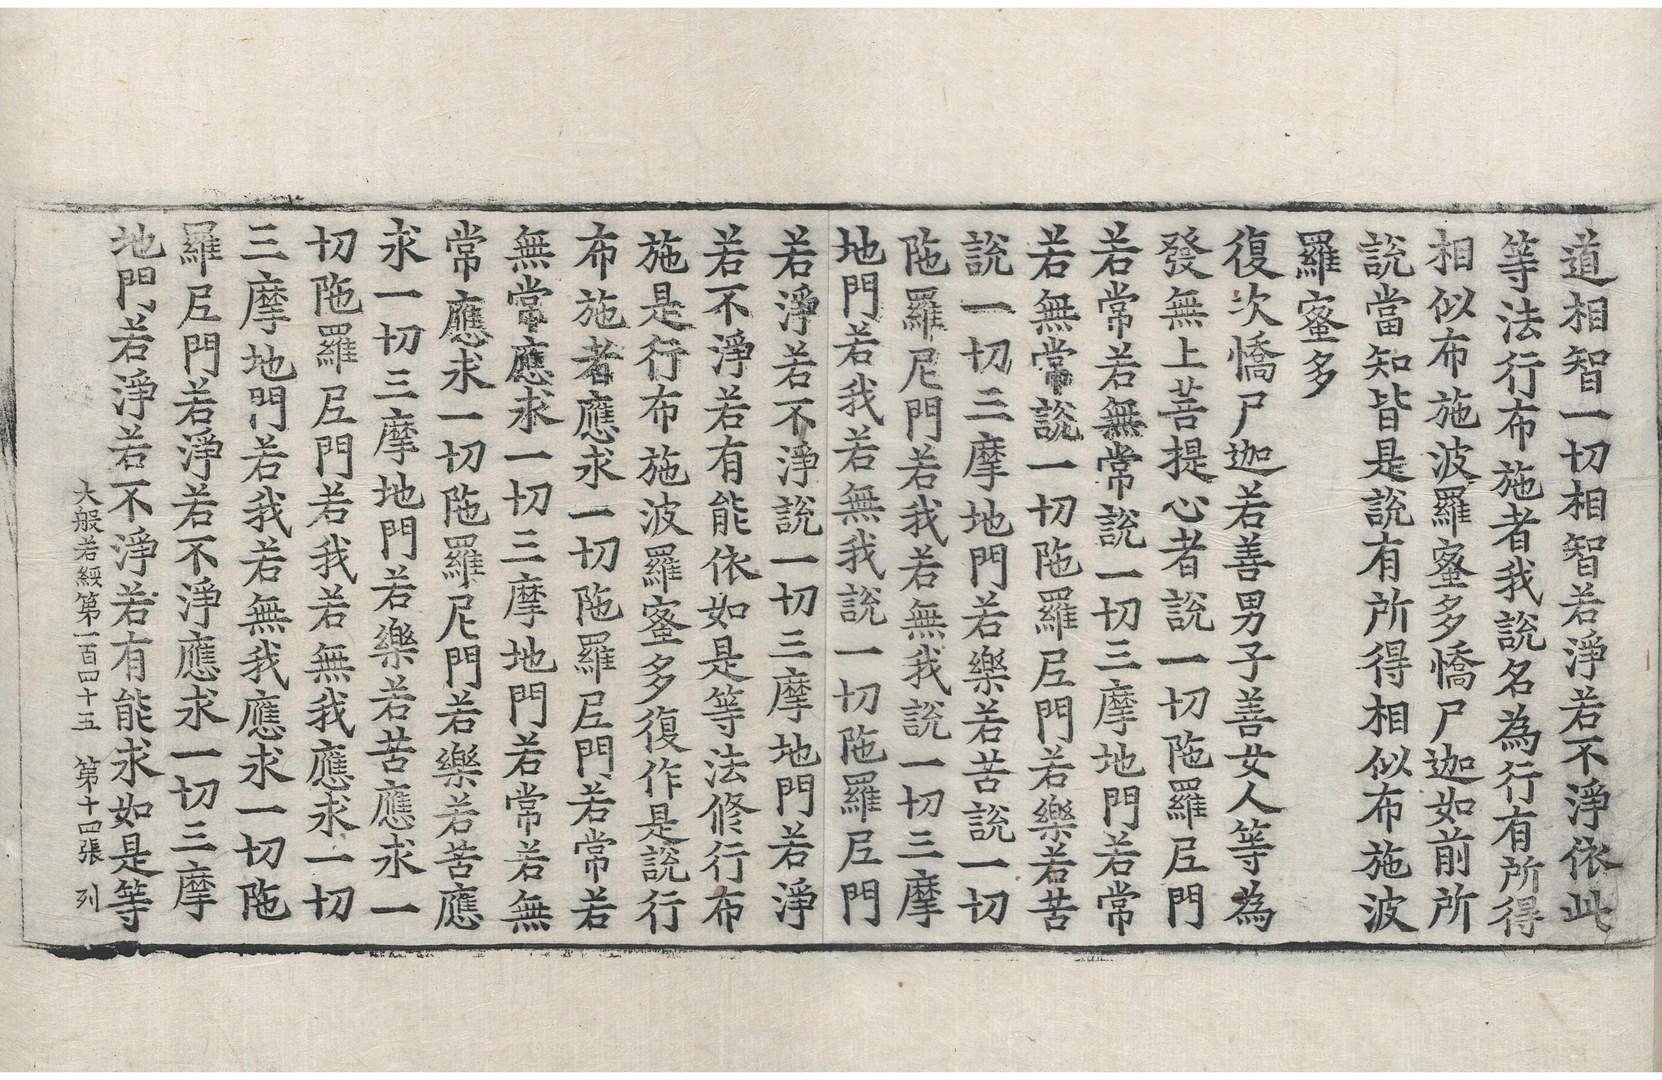 道相智一切相智若淨若不淨依此
等法行布施者我說名為行有所得
相似布施波羅蜜多憍尸迦如前所
說當知皆是說有所得相似布施波
羅蜜多
復次憍尸迦若善男子善女人等為
發無上菩提心者說一切陁羅尼門
若常若無常說一切三摩地門若常
若無常說一切陁羅尼門若樂若苦
說一切三摩地門若樂若苦說一切
陁羅尼門若我若無我說一切三摩
地門若我若無我說一切陁羅尼門
若淨若不淨說一切三摩地門若淨
若不淨若有能依如是等法修行布
施是行布施波羅蜜多復作是說行
布施者應求一切陁羅尼門若常若
無常應求一切三摩地門若常若無
常應求一切陁羅尼門若樂若苦應
求一切三摩地門若樂若苦應求一
切陁羅尼門若我若無我應求一切
三摩地門若我若無我應求一切陁
羅尼門若淨若不淨應求一切三摩
地門若淨若不淨若有能求如是等
大般若經第一百四十五 第十四張 列